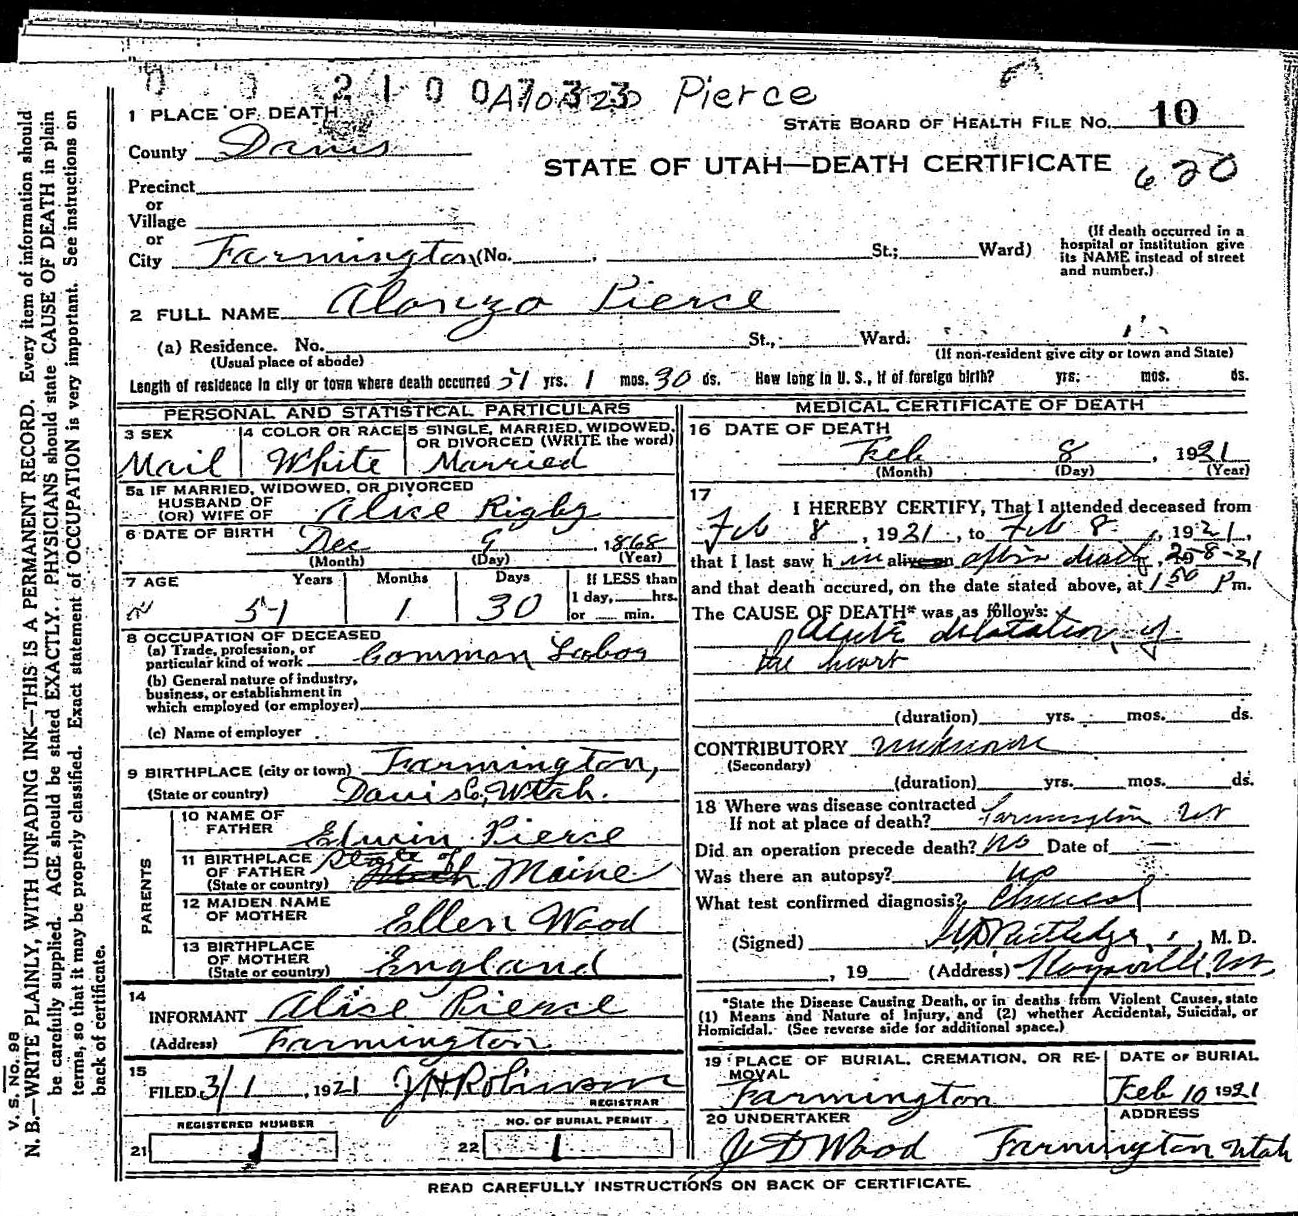 2100733 Alonzo Pierce
1 PLACE OF DEATH
STATE BOARD OF HEALTH FILE NO. 10
County Davis
STATE OF UTAH—DEATH CERTIFICATE 620
Precinct
or
Village
or
City Farmington (No. St.; Ward)
(If death occurred in a
hospital or institution give
its NAME instead of street
and number.)
2 FULL NAME Alonzo Pierce
(a) Residence. No. St., Ward.
(Usual place of abode)
(If non-resident give city or town and State)
Length of residence in city or town where death occurred 51 yrs. 1 mos. 30 ds. How long in U. S., if of foreign birth? yrs. mos. ds.
PERSONAL AND STATISTICAL PARTICULARS
3 SEX
Mail
4 COLOR OR RACE
White
5 SINGLE, MARRIED, WIDOWED,
OR DIVORCED (WRITE the word)
Married
5a IF MARRIED, WIDOWED, OR DIVORCED
HUSBAND OF
(OR) WIFE OF Alice Rigby
6 DATE OF BIRTH
Dec 9, 1868
(Month) (Day) (Year)
7 AGE Years Months Days
51 1 30
If LESS than
1 day, hrs.
or min.
8 OCCUPATION OF DECEASED
(a) Trade, profession, or
particular kind of work Common Labor
(b) General nature of industry,
business, or establishment in
which employed (or employer)
(c) Name of employer
9 BIRTHPLACE (city or town) Farmington,
(State or country) Davis Co, Utah.
PARENTS
10 NAME OF
FATHER Edwin Pierce
11 BIRTHPLACE
OF FATHER
(State or country) State of Maine
12 MAIDEN NAME
OF MOTHER Ellen Wood
13 BIRTHPLACE
OF MOTHER
(State or country) England
14
INFORMANT Alice Pierce
(Address) Farmington
15
FILED 3/1, 1921 J H Robinson
REGISTRAR
REGISTERED NUMBER
21 1
NO. OF BURIAL PERMIT
22 1
MEDICAL CERTIFICATE OF DEATH
16 DATE OF DEATH
Feb 8, 1921
(Month) (Day) (Year)
17
I HEREBY CERTIFY, That I attended deceased from
Feb 8, 1921, to Feb 8, 1921,
that I last saw h im alive on after death, 2-8-21
and that death occured, on the date stated above, at 1 50 Pm.
The CAUSE OF DEATH* was as follows:
Acute dilatation of
the heart
(duration) yrs. mos. ds.
CONTRIBUTORY unknown
(Secondary)
(duration) yrs. mos. ds.
18 Where was disease contracted
If not at place of death? Farmington Ut
Did an operation precede death? No Date of —
Was there an autopsy? No
What test confirmed diagnosis? Clinical
(Signed) Rutledge, M. D.
, 19 (Address) Kaysville Ut.
*State the Disease Causing Death, or in deaths from Violent Causes, state
(1) Means and Nature of Injury, and (2) whether Accidental, Suicidal, or
Homicidal. (See reverse side for additional space.)
19 PLACE OF BURIAL, CREMATION, OR RE-
MOVAL
Farmington
DATE OF BURIAL
Feb 10 1921
20 UNDERTAKER
J D Wood
ADDRESS
Farmington Utah
READ CAREFULLY INSTRUCTIONS ON BACK OF CERTIFICATE.
V. S. No. 98
N. B.—WRITE PLAINLY, WITH UNFADING INK—THIS IS A PERMANENT RECORD. Every item of information should
be carefully supplied. AGE should be stated EXACTLY. PHYSICIANS should state CAUSE OF DEATH in plain
terms, so that it may be properly classified. Exact statement of OCCUPATION is very important. See instructions on
back of certificate.